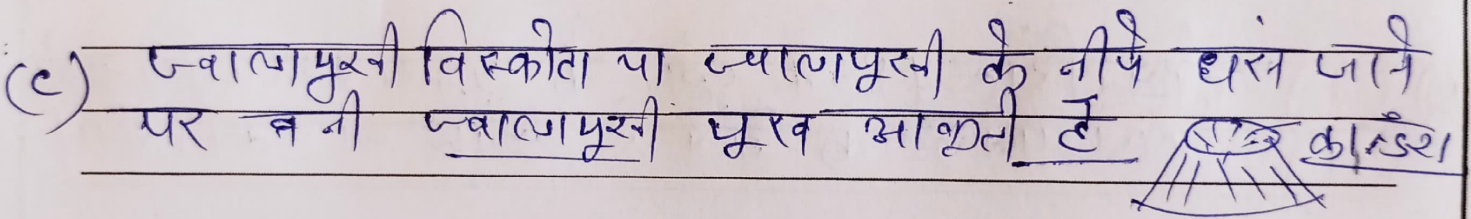 (c) ज्वालामुखी विस्फोटा या ज्वालामुखी के नीचे धस जाने
पर बनी ज्वालामुखी मुख आकृती है काल्डेरा